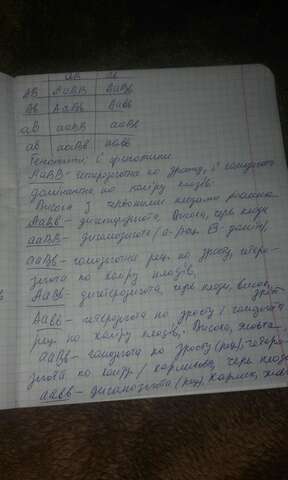 aB аb
AB AaBB AaBb
Ab AaBb Aabb
aB aaBB aaBb
ab aaBb aabb
Генотипи і фенотипи
AaBB – гетерозигота по зросту, і гомозигота
домінантна по кольору плодів.
Висока з червоними плодами рослина.
AaBb – дигетерозигота, висока, черв. плоди
aaBB – дигомозигота (а-рец. В-домін),
aaBb – гомозигота рец. по зросту, гетеро-
зигота по кольору плодів.
AaBb – дигетерозигота, черв. плоди, висок.
Aabb – гетерозигота по зросту і гомозигота
рец. по кольору плодів. Висока, жовта.
aaBb – гомозигота по зросту (рец), гетеро-
зигота по кольору / карликова черв. плоди
aabb – дигомозигота (рец), карлик,